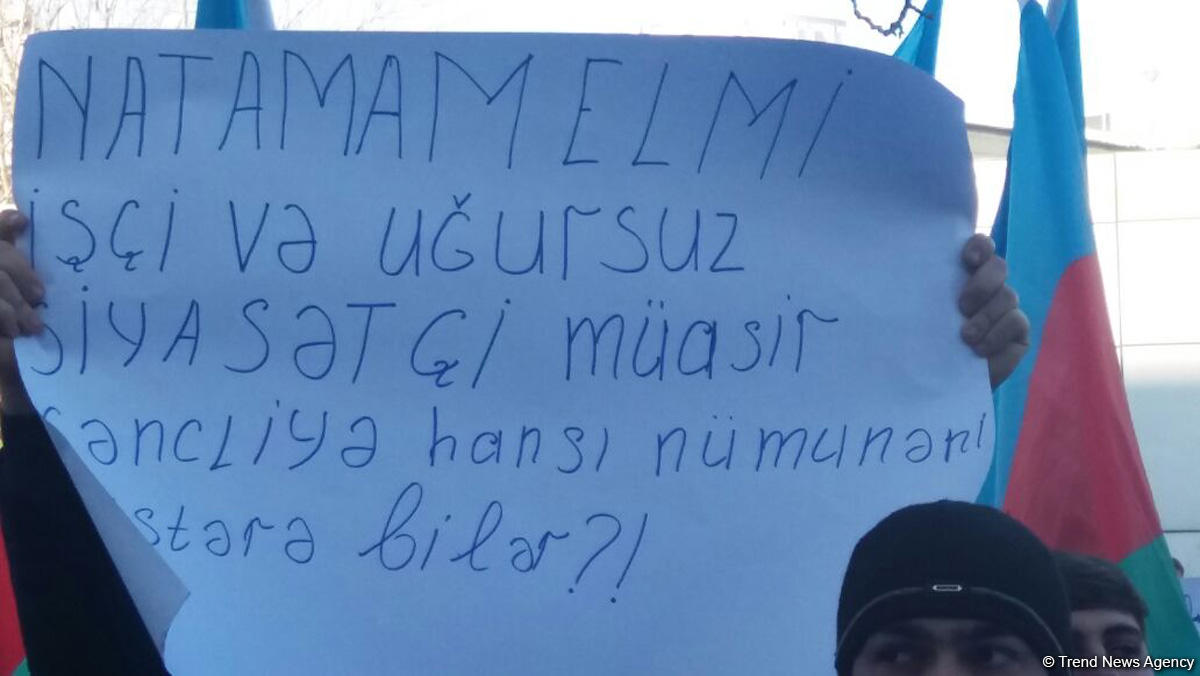 NATAMAM ELMİ
İŞÇİ VƏ UĞURSUZ
SİYASƏTÇİ MÜASİR
GƏNCLİYƏ hansı nümunəni
östərə bilər?!
© Trend News Agency